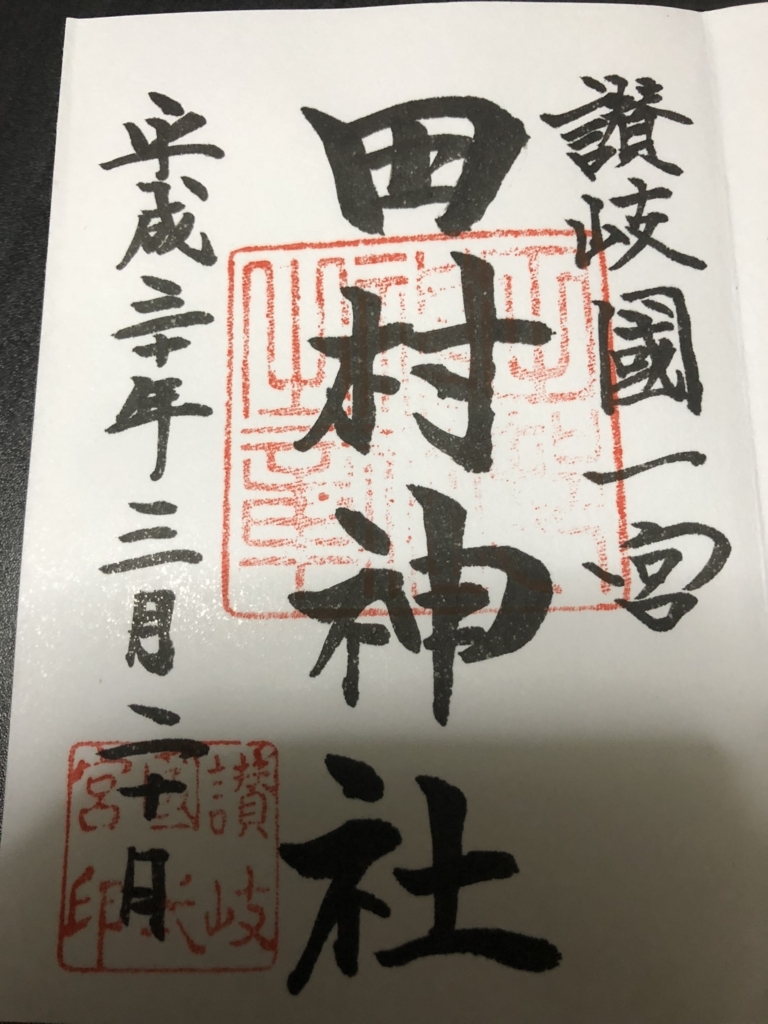 讃岐國一宮
田村神社
平成三十年三月二十日
讃岐
國
宮印